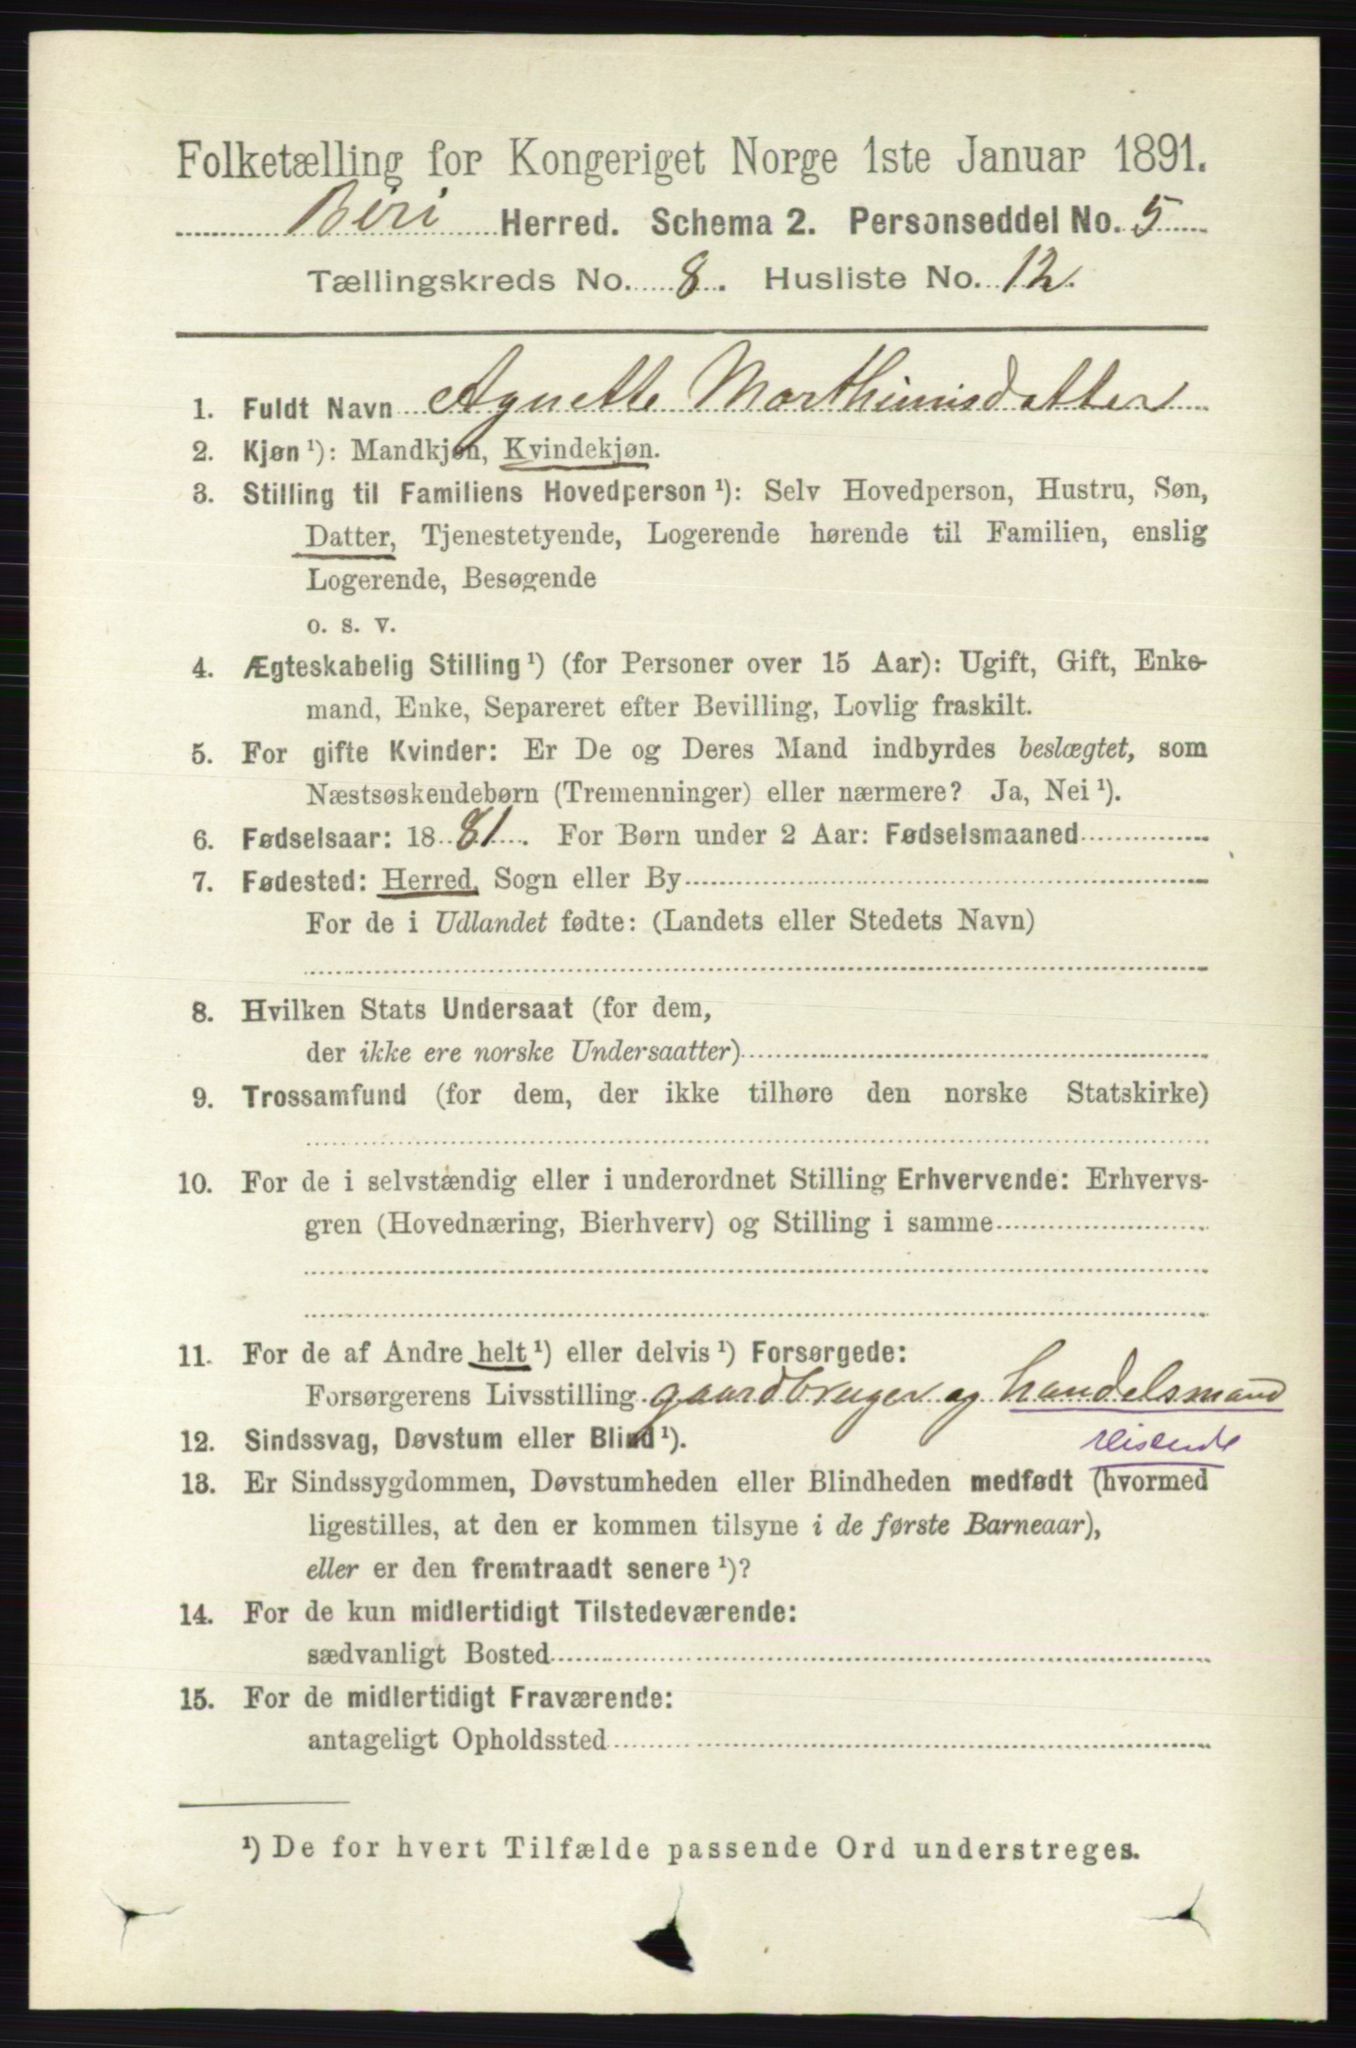 Folketælling for Kongeriget Norge 1ste Januar 1891.
Biri Herred. Schema 2. Personseddel No. 5
Tællingskreds No. 8. Husliste No. 12.
1. Fuldt Navn Agnette Marthinusdatter
2. Kjøn ¹): Mandkjøn, Kvindekjøn.
3. Stilling til Familiens Hovedperson ¹): Selv Hovedperson, Hustru, Søn,
Datter, Tjenestetyende, Logerende hørende til Familien, enslig
Logerende, Besøgende
o. s. v.
4. Ægteskabelig Stilling ¹) (for Personer over 15 Aar): Ugift, Gift, Enke-
mand, Enke, Separeret efter Bevilling, Lovlig fraskilt.
5. For gifte Kvinder: Er De og Deres Mand indbyrdes beslægtet, som
Næstsøskendebørn (Tremenninger) eller nærmere? Ja, Nei ¹).
6. Fødselsaar: 1881. For Børn under 2 Aar: Fødselsmaaned
7. Fødested: Herred, Sogn eller By
For de i Udlandet fødte: (Landets eller Stedets Navn)
8. Hvilken Stats Undersaat (for dem,
der ikke ere norske Undersaatter)
9. Trossamfund (for dem, der ikke tilhøre den norske Statskirke)
10. For de i selvstændig eller i underordnet Stilling Erhvervende: Erhvervs-
gren (Hovednæring, Bierhverv) og Stilling i samme
11. For de af Andre helt ¹) eller delvis ¹) Forsørgede:
Forsørgerens Livsstilling gaardbruger og handelsmand
12. Sindssvag, Døvstum eller Blind ¹). reisende
13. Er Sindssygdommen, Døvstumheden eller Blindheden medfødt (hvormed
ligestilles, at den er kommen tilsyne i de første Barneaar),
eller er den fremtraadt senere ¹)?
14. For de kun midlertidigt Tilstedeværende:
sædvanligt Bosted
15. For de midlertidigt Fraværende:
antageligt Opholdssted
¹) De for hvert Tilfælde passende Ord understreges.